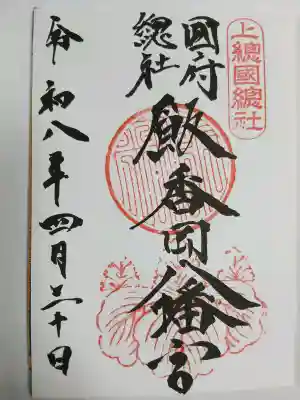 上總國總社
國府
総社
飯香岡八幡宮
令和八年四月三十日